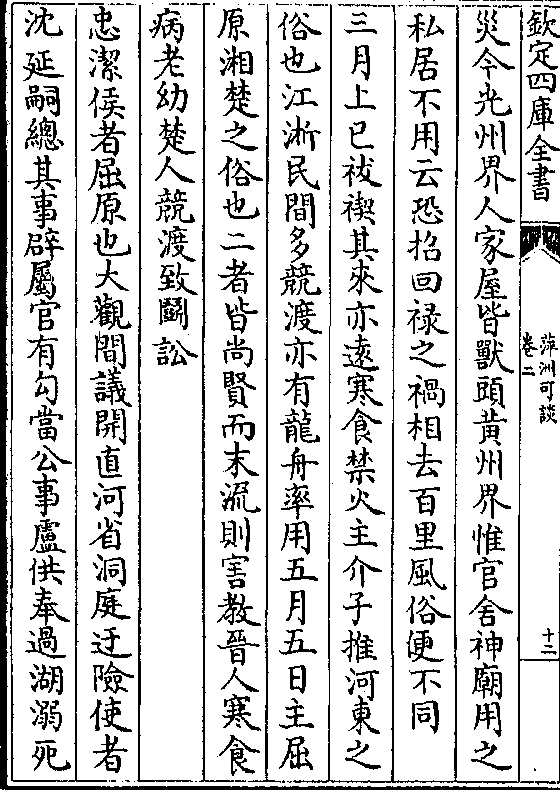 欽定四庫全書
萍洲可談
卷二
十二
災今光州界人家屋皆獸頭黃州界惟官舍神廟用之
私居不用云恐招回祿之禍相去百里風俗便不同
三月上巳祓禊其來亦遠寒食禁火主介子推河東之
俗也江淅民間多競渡亦有龍舟率用五月五日主屈
原湘楚之俗也二者皆尚賢而末流則害教晉人寒食
病老幼楚人競渡致鬭訟
忠潔侯者屈原也大觀間議開直河省洞庭迂險使者
沈延嗣總其事辟屬官有勾當公事盧供奉過湖溺死